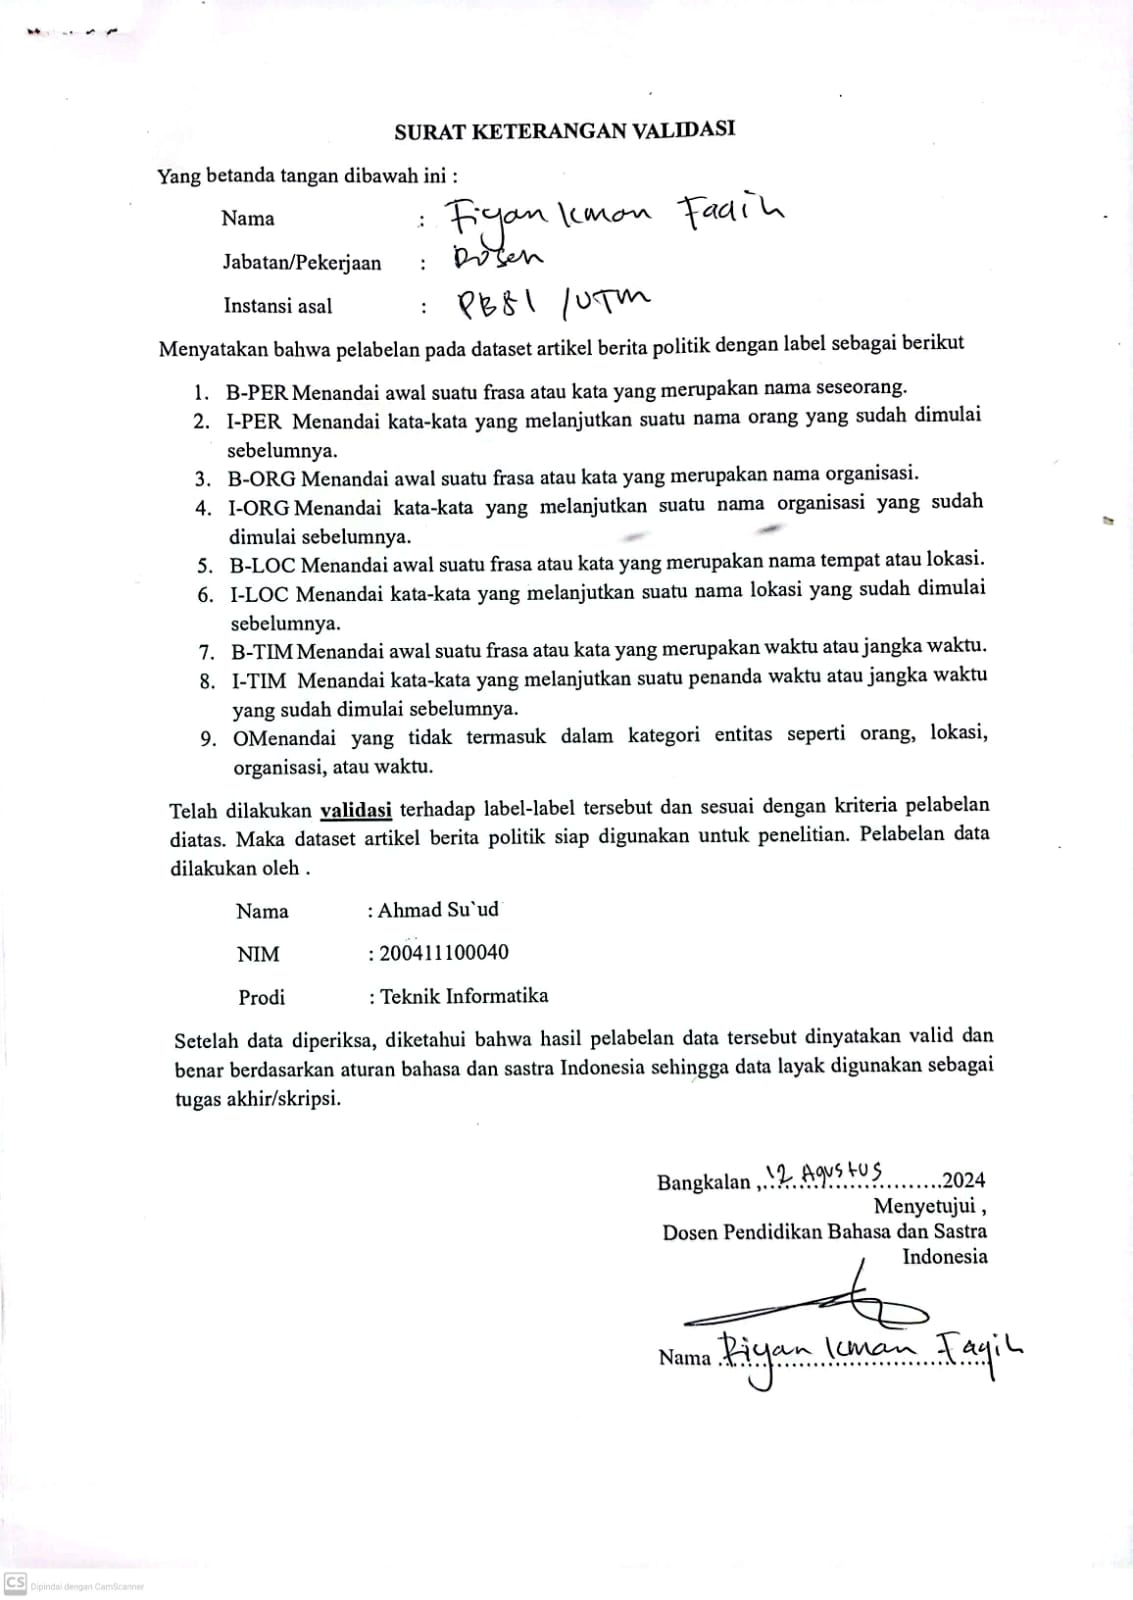 SURAT KETERANGAN VALIDASI
Yang betanda tangan dibawah ini :
Nama : Fiyan Ilman Faqih
Jabatan/Pekerjaan : Dosen
Instansi asal : PBSI /UTM
Menyatakan bahwa pelabelan pada dataset artikel berita politik dengan label sebagai berikut
1. B-PER Menandai awal suatu frasa atau kata yang merupakan nama seseorang.
2. I-PER Menandai kata-kata yang melanjutkan suatu nama orang yang sudah dimulai
sebelumnya.
3. B-ORG Menandai awal suatu frasa atau kata yang merupakan nama organisasi.
4. I-ORG Menandai kata-kata yang melanjutkan suatu nama organisasi yang sudah
dimulai sebelumnya.
5. B-LOC Menandai awal suatu frasa atau kata yang merupakan nama tempat atau lokasi.
6. I-LOC Menandai kata-kata yang melanjutkan suatu nama lokasi yang sudah dimulai
sebelumnya.
7. B-TIM Menandai awal suatu frasa atau kata yang merupakan waktu atau jangka waktu.
8. I-TIM Menandai kata-kata yang melanjutkan suatu penanda waktu atau jangka waktu
yang sudah dimulai sebelumnya.
9. OMenandai yang tidak termasuk dalam kategori entitas seperti orang, lokasi,
organisasi, atau waktu.
Telah dilakukan validasi terhadap label-label tersebut dan sesuai dengan kriteria pelabelan
diatas. Maka dataset artikel berita politik siap digunakan untuk penelitian. Pelabelan data
dilakukan oleh .
Nama : Ahmad Su`ud
NIM : 200411100040
Prodi : Teknik Informatika
Setelah data diperiksa, diketahui bahwa hasil pelabelan data tersebut dinyatakan valid dan
benar berdasarkan aturan bahasa dan sastra Indonesia sehingga data layak digunakan sebagai
tugas akhir/skripsi.
Bangkalan , 12 Agustus 2024
Menyetujui ,
Dosen Pendidikan Bahasa dan Sastra
Indonesia
Nama Fiyan Ilman Faqih
CS Dipindai dengan CamScanner